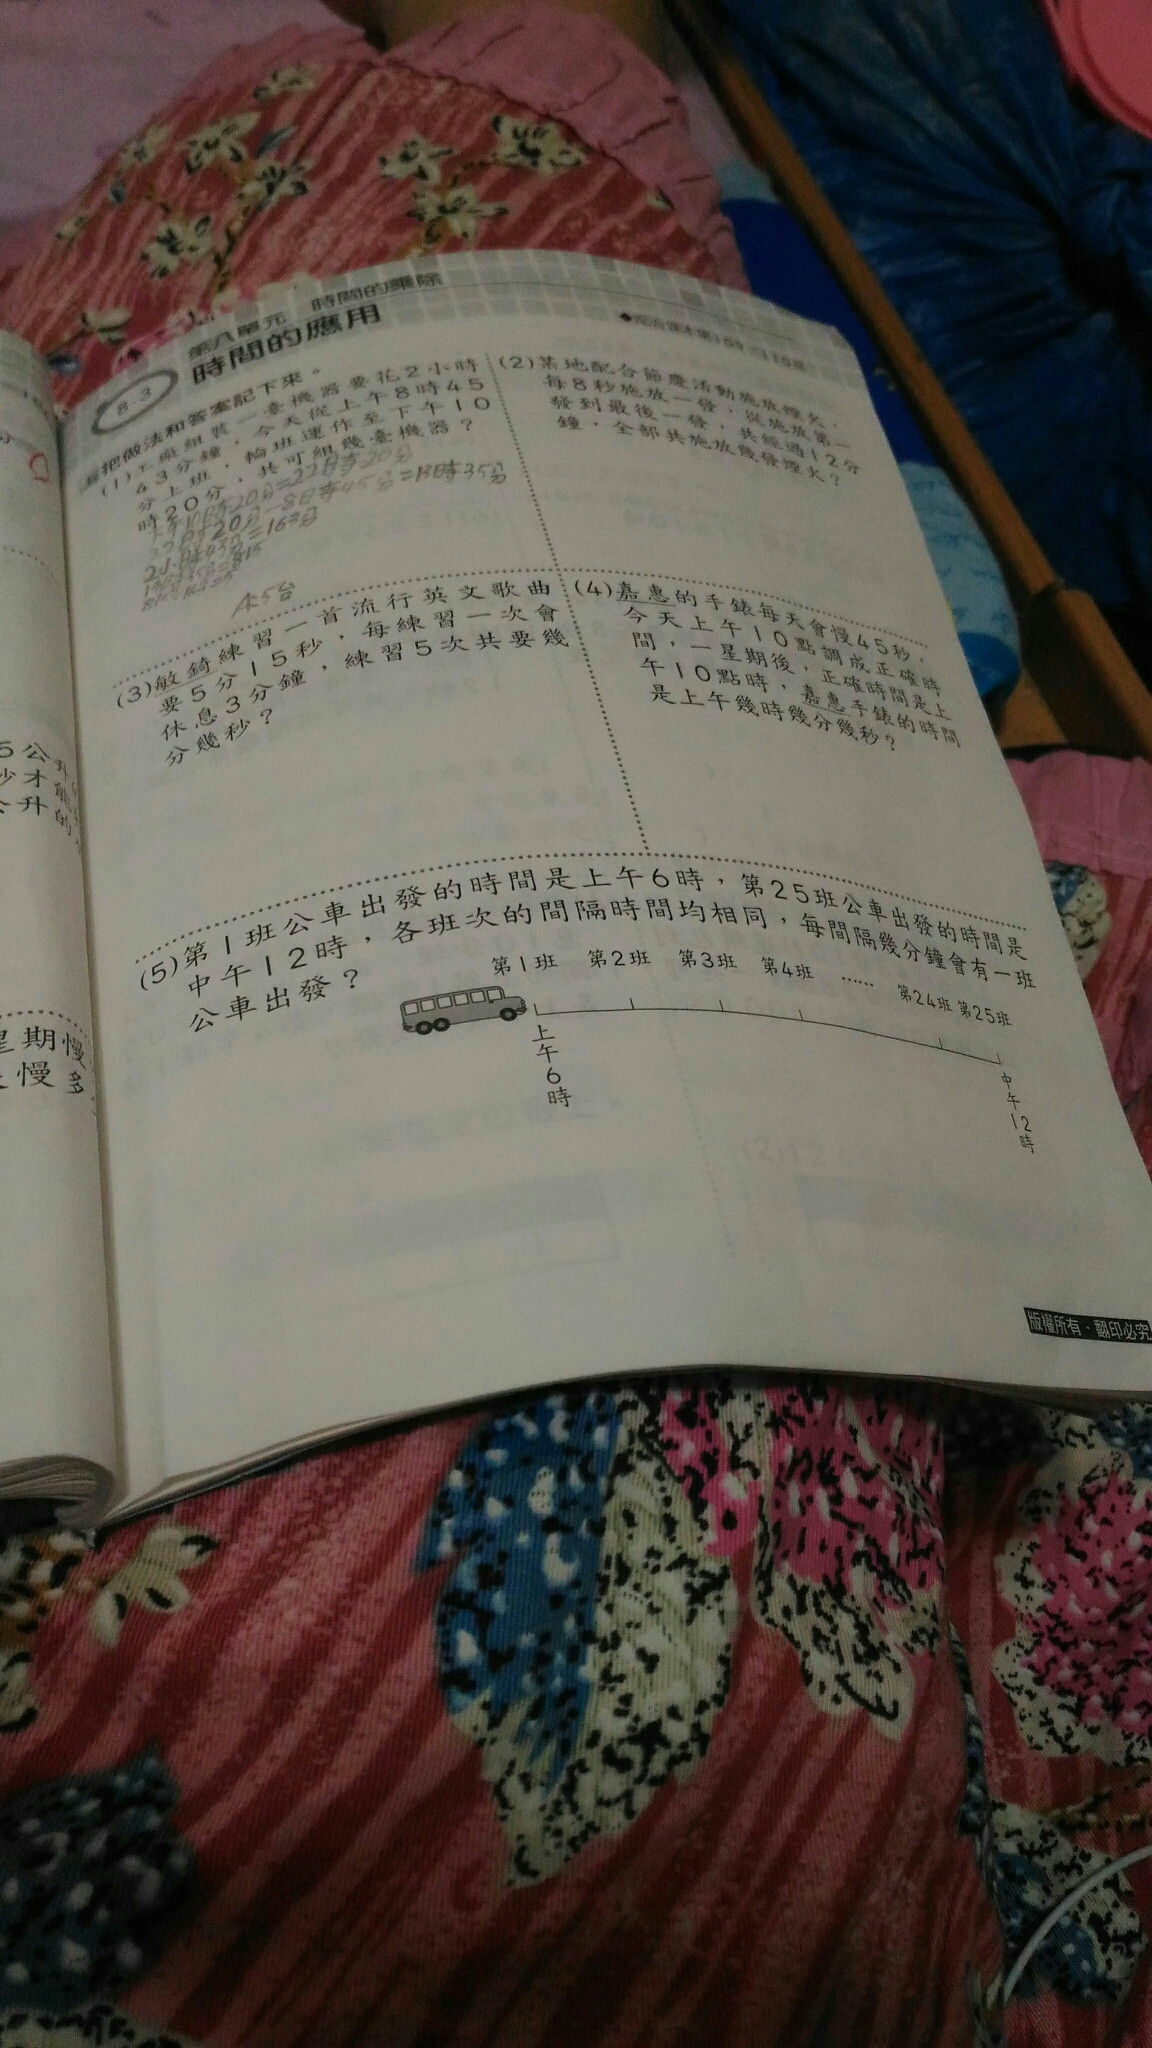 第八單元 時間的乘除
8-3
時間的應用
把做法和答案記下來。
(1)工廠組裝一臺機器要花2小時
43分鐘,今天從上午8時45
分上班,輪班運作至下午10
時20分,共可組幾臺機器?
下午10時20分=22時20分
22時20分-8時45分=13時35分
2小時43分=163分
815÷163=5
A:5台
(2)某地配合節慶活動施放煙火,
每8秒施放一發,從施放第一
發到最後一發,共經過12分
鐘,全部共施放幾發煙火?
(3)敏錡練習一首流行英文歌曲
要5分15秒,每練習一次會
休息3分鐘,練習5次共要幾
分幾秒?
(4)嘉惠的手錶每天會慢45秒,
今天上午10點調成正確時
間,一星期後,正確時間是上
午10點時,嘉惠手錶的時間
是上午幾時幾分幾秒?
(5)第1班公車出發的時間是上午6時,第25班公車出發的時間是
中午12時,各班次的間隔時間均相同,每間隔幾分鐘會有一班
公車出發?
第1班 第2班 第3班 第4班 …… 第24班 第25班
上午6時
中午12時
版權所有‧翻印必究
5公升
秒才能
公升的
星期慢
慢多